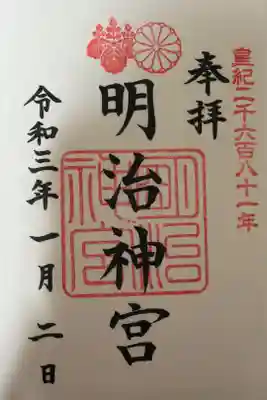 皇紀二千六百八十一年
奉拝
明治神宮
明治神宮
令和三年一月二日